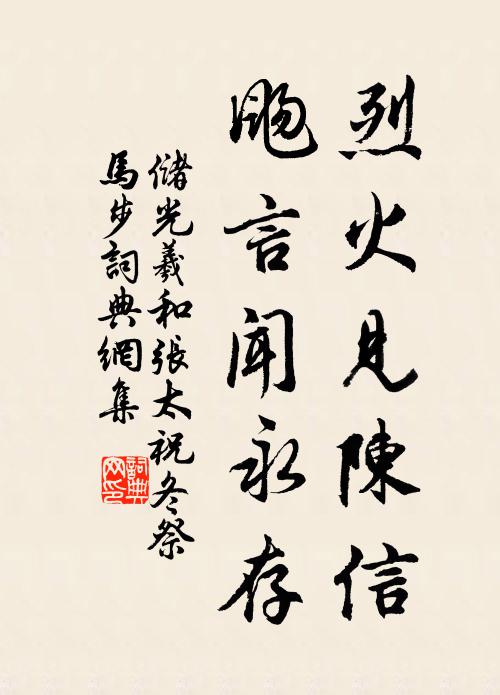 烈火見陳信
颺言聞永存
儲光羲和張太祝冬祭
馬步詞典網集
詞典
网印